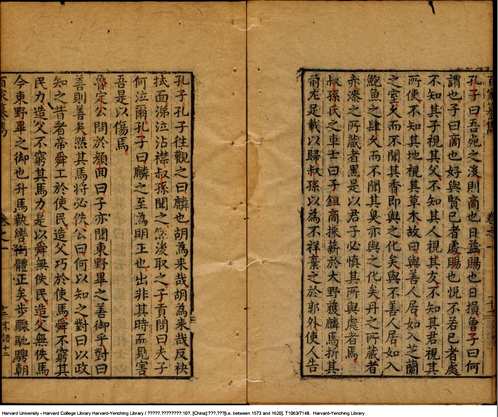 孔子曰吾死之後則商也日益賜也日損曾子曰何
謂也子曰商也好與賢己者處賜也悅不若己者處
不知其子視其父不知其人視其友不知其君視其
所使不知其地視其草木故曰與善人居如入芝蘭
之室久而不聞其香即與之化矣與不善人居如入
鮑魚之肆久而不聞其臭亦與之化矣丹之所藏者
赤漆之所藏者黑是以君子必慎其所與處者焉
叔孫氏之車士曰子鉏商採薪於大野獲麟焉折其
前左足載以歸叔孫以為不祥棄之於郭外使人告
孔子孔子往觀之曰麟也胡為來哉胡為來哉反袂
拭面涕泣沾襟叔孫聞之然後取之子貢問曰夫子
何泣爾孔子曰麟之至為明王也出非其時而見害
吾是以傷焉
魯定公問於顏回曰子亦聞東野畢之善御乎對曰
善則善矣然其馬將必佚公曰何以知之對曰以政
知之昔者帝舜工於使民造父巧於使馬舜不窮其
民力造父不窮其馬力是以舜無佚民造父無佚馬
今東野畢之御也升馬執轡銜體正矣步驟馳騁朝
Harvard University - Harvard College Library Harvard-Yenching Library